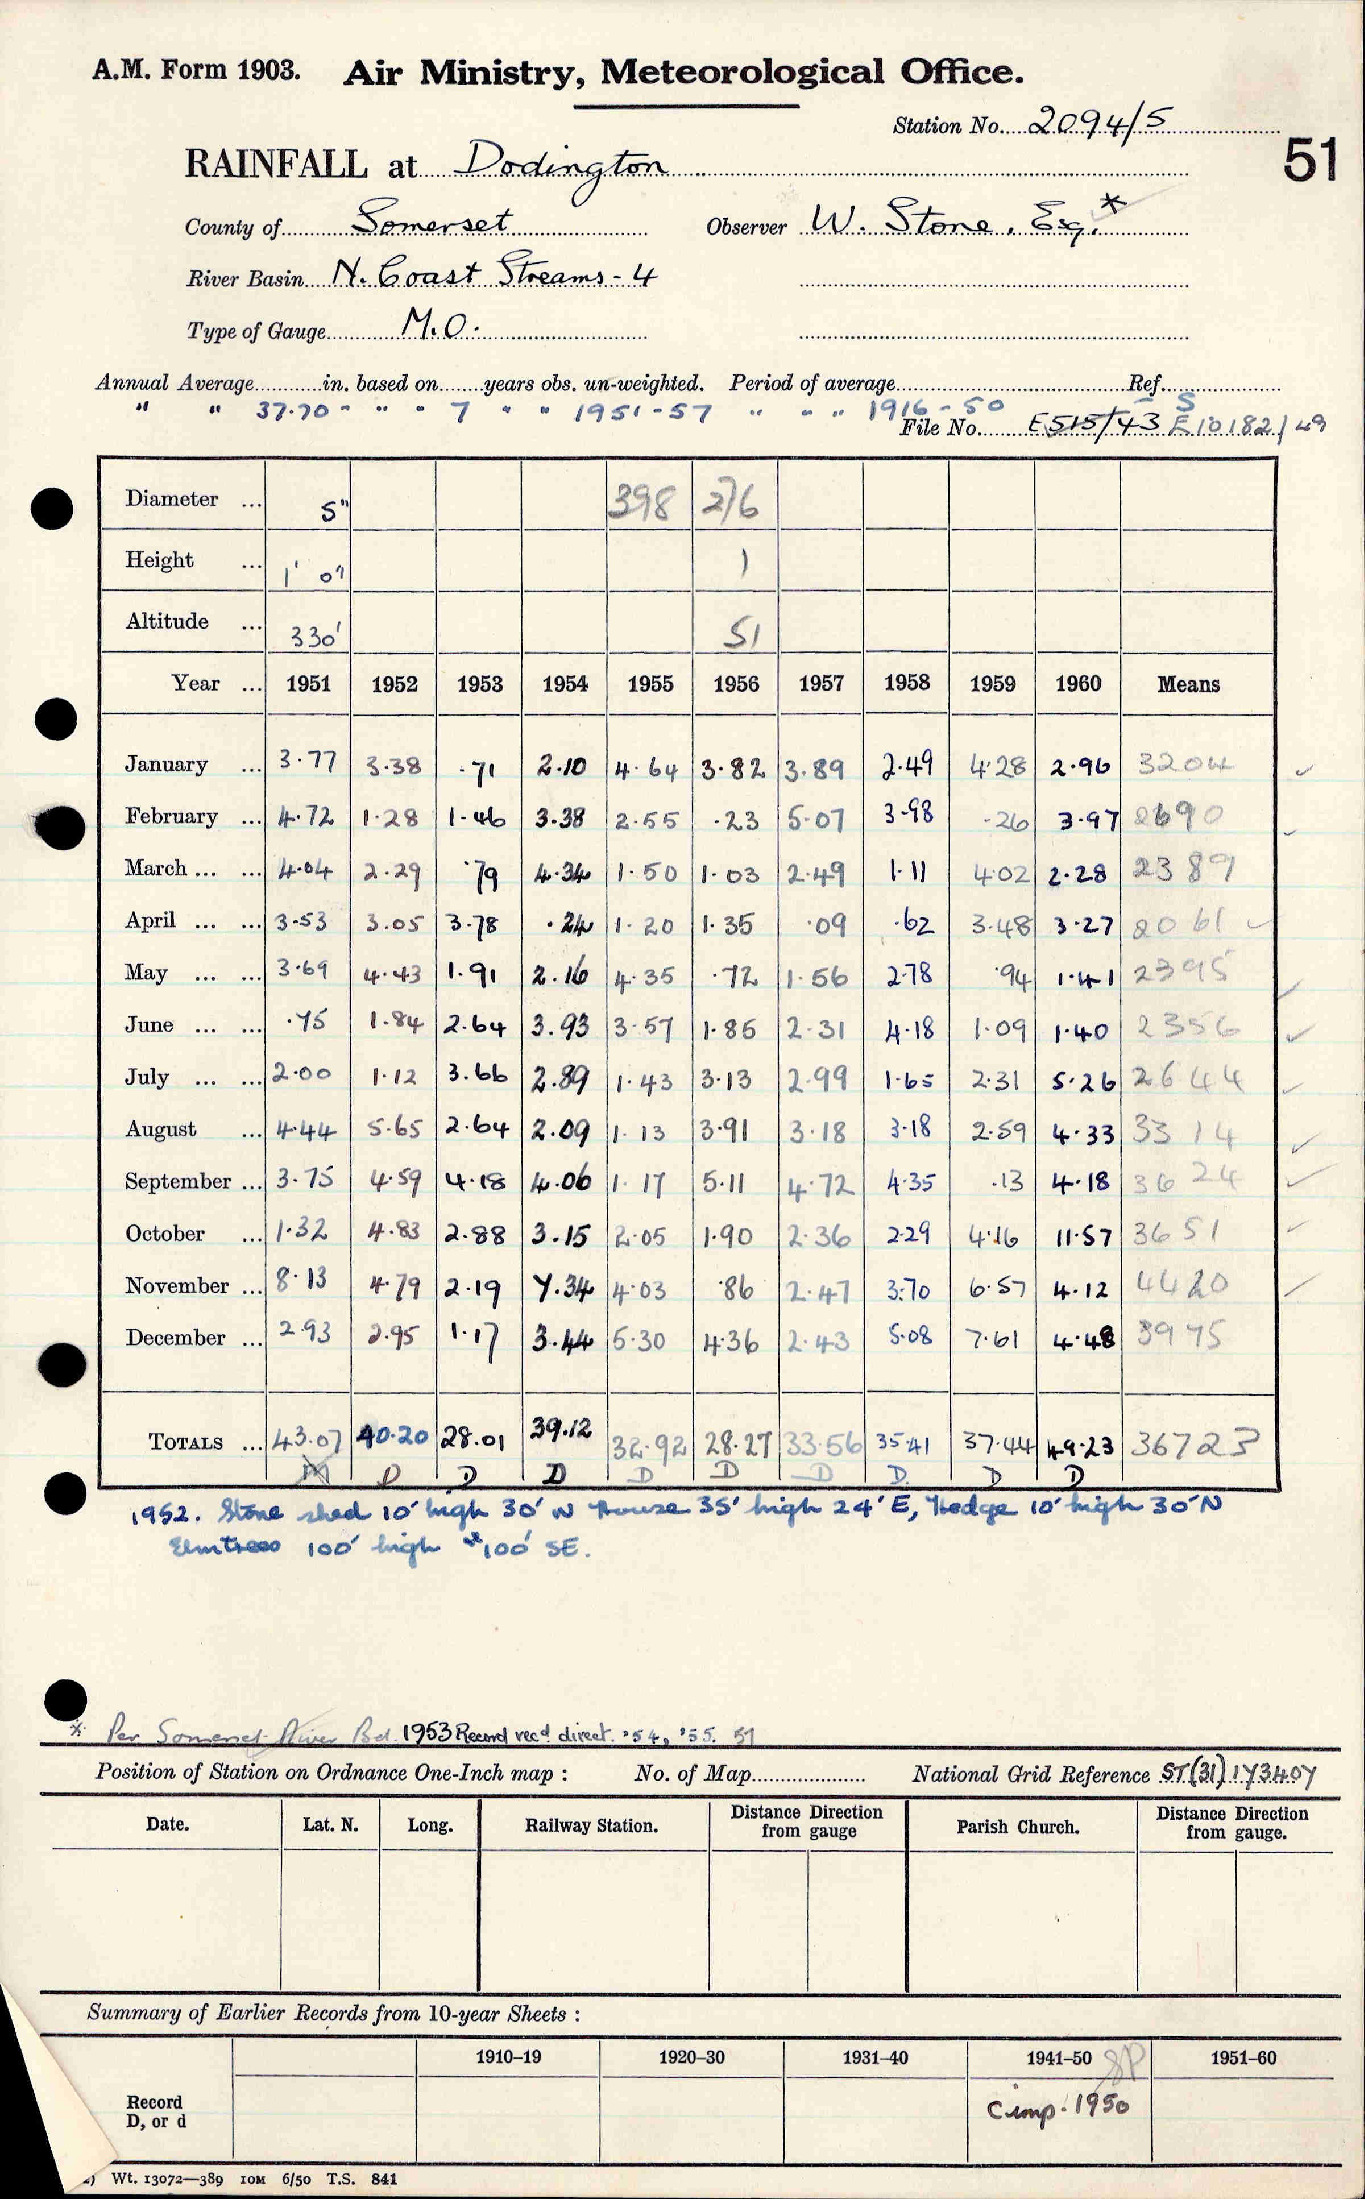 A.M. Form 1903. Air Ministry, Meteorological Office.
Station No. 2094/5
51
RAINFALL at Dodington
County of Somerset Observer W. Stone, Esq.*
River Basin N. Coast Streams - 4
Type of Gauge M.O.
Annual Average in. based on years obs. un-weighted. Period of average Ref.
" " 37.70 - " - 7 " " 1951-57 " - " 1916-50 S
File No. E515/43 E10182/49
Diameter ... 5" 398 2/6
Height ... 1' 0" 1
Altitude ... 330' 51
Year ... 1951 1952 1953 1954 1955 1956 1957 1958 1959 1960 Means
January ... 3.77 3.38 .71 2.10 4.64 3.82 3.89 2.49 4.28 2.96 3204 ✓
February ... 4.72 1.28 1.46 3.38 2.55 .23 5.07 3.98 .26 3.97 2690 ✓
March ... ... 4.04 2.29 .79 4.34 1.50 1.03 2.49 1.11 4.02 2.28 2389
April ... ... 3.53 3.05 3.78 .24 1.20 1.35 .09 .62 3.48 3.27 2061 ✓
May ... ... 3.69 4.43 1.91 2.16 4.35 .72 1.56 2.78 .94 1.41 2395 ✓
June ... ... .75 1.84 2.64 3.93 3.57 1.85 2.31 4.18 1.09 1.40 2356 ✓
July ... ... 2.00 1.12 3.66 2.89 1.43 3.13 2.99 1.65 2.31 5.26 2644 ✓
August ... 4.44 5.65 2.64 2.09 1.13 3.91 3.18 3.18 2.59 4.33 3314 ✓
September ... 3.75 4.59 4.18 4.06 1.17 5.11 4.72 4.35 .13 4.18 3624 ✓
October ... 1.32 4.83 2.88 3.15 2.05 1.90 2.36 2.29 4.16 11.57 3651 ✓
November ... 8.13 4.79 2.19 7.34 4.03 .86 2.47 3.70 6.57 4.12 4420 ✓
December ... 2.93 2.95 1.17 3.44 5.30 4.36 2.43 5.08 7.61 4.48 3975
TOTALS ... 43.07 40.20 28.01 39.12 32.92 28.27 33.56 35.41 37.44 49.23 36723
M D D D D D D D D D
1952. Stone shed 10' high 30' W House 35' high 24' E, Hedge 10' high 30' N
Elmtrees 100' high 100' SE.
* Per Somerset River Bd. 1953 Record rec'd direct. '54, '55. 57
Position of Station on Ordnance One-Inch map : No. of Map National Grid Reference ST(31)173407
Date. Lat. N. Long. Railway Station. Distance Direction from gauge Parish Church. Distance Direction from gauge.
Summary of Earlier Records from 10-year Sheets :
1910-19 1920-30 1931-40 1941-50 1951-60
SP
Record
D, or d
Cimp. 1950
Wt. 13072—389 10M 6/50 T.S. 841